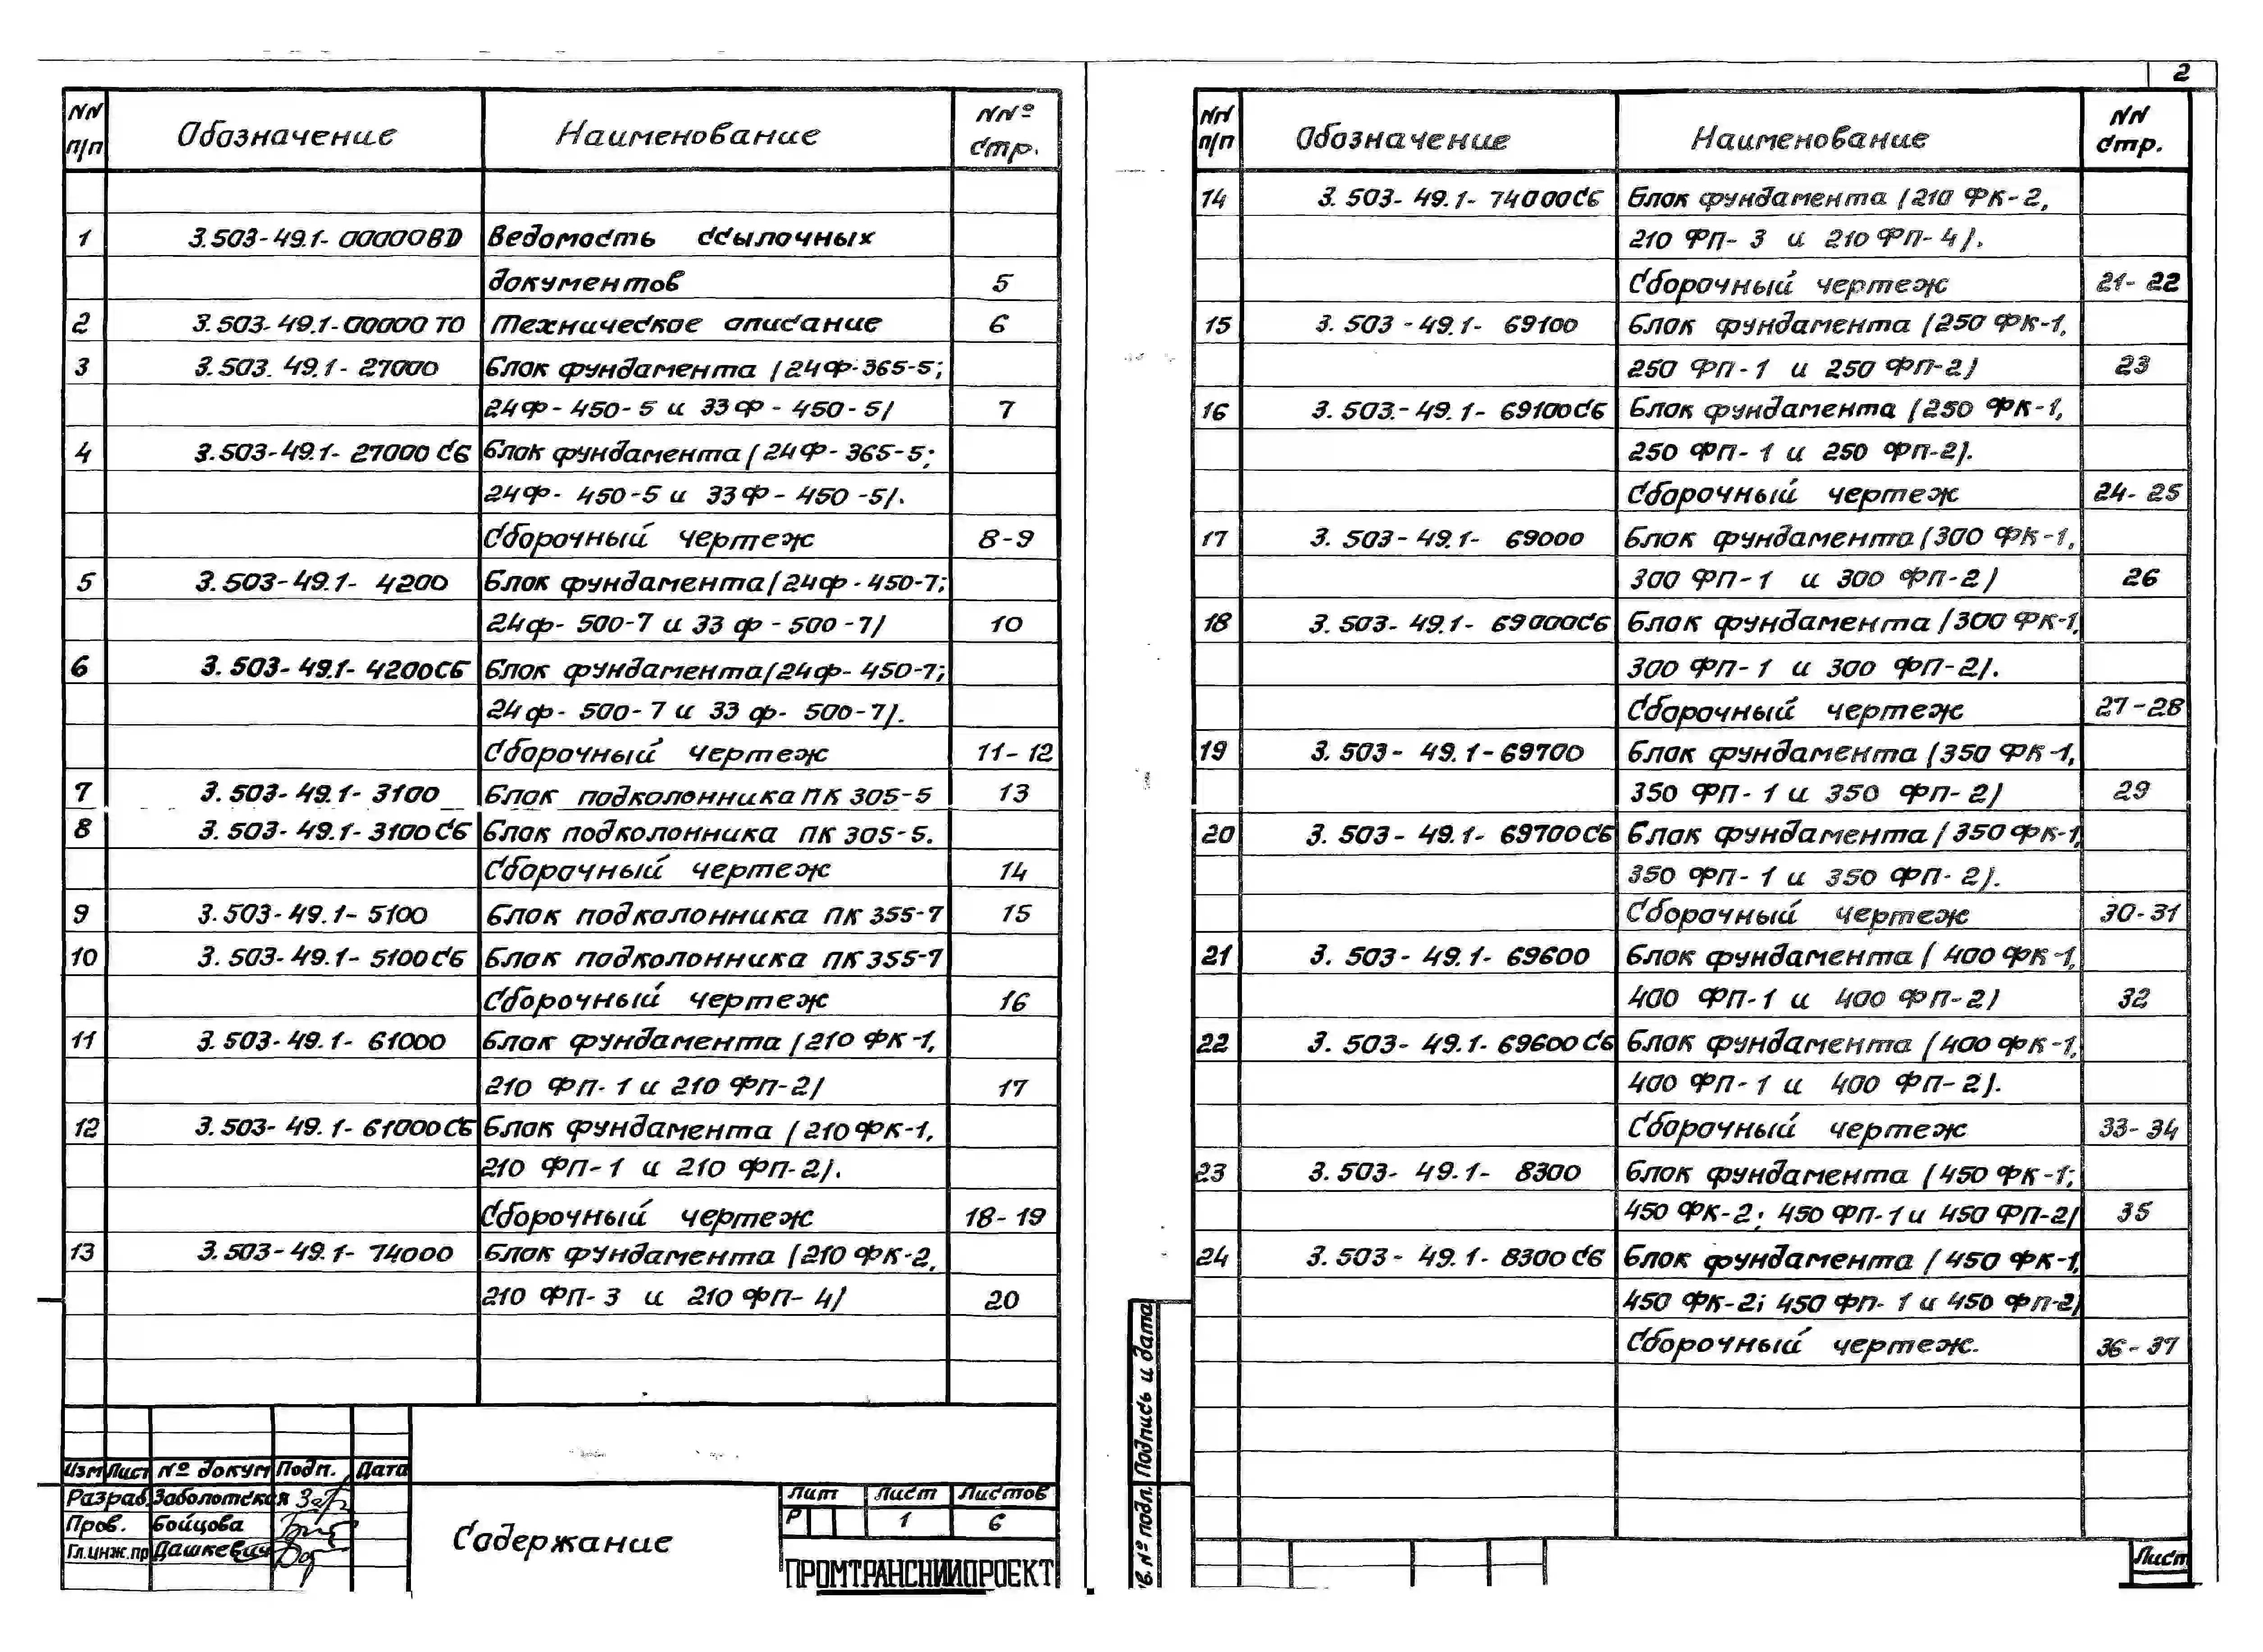 2
NN п/п Обозначение Наименование NNº стр.
1 3.503-49.1-00000ВD Ведомость ссылочных
документов 5
2 3.503-49.1-00000 ТО Техническое описание 6
3 3.503. 49.1-27000 Блок фундамента (24Ф-365-5;
24Ф-450-5 и 33Ф-450-5) 7
4 3.503-49.1-27000 СБ Блок фундамента (24Ф-365-5;
24Ф-450-5 и 33Ф-450-5).
Сборочный чертеж 8-9
5 3.503-49.1-4200 Блок фундамента (24ф-450-7;
24ф-500-7 и 33ф-500-7) 10
6 3.503-49.1-4200СБ Блок фундамента (24ф-450-7;
24ф-500-7 и 33ф-500-7).
Сборочный чертеж 11-12
7 3.503-49.1-3100 Блок подколонника ПК 305-5 13
8 3.503-49.1-3100СБ Блок подколонника ПК 305-5.
Сборочный чертеж 14
9 3.503-49.1-5100 Блок подколонника ПК 355-7 15
10 3.503-49.1-5100СБ Блок подколонника ПК 355-7
Сборочный чертеж 16
11 3.503-49.1-61000 Блок фундамента (210 ФК-1,
210 ФП-1 и 210 ФП-2) 17
12 3.503-49.1-61000СБ Блок фундамента (210 ФК-1,
210 ФП-1 и 210 ФП-2).
Сборочный чертеж 18-19
13 3.503-49.1-74000 Блок фундамента (210 ФК-2,
210 ФП-3 и 210 ФП-4) 20
Изм Лист № докум Подп. Дата
Разраб. Заболотская
Пров. Бойцова
Гл.инж.пр Дашкевич
Содержание
Лит Лист Листов
Р 1 6
ПРОМТРАНСНИИПРОЕКТ
NN п/п Обозначение Наименование NN стр.
14 3.503-49.1-74000СБ Блок фундамента (210 ФК-2,
210 ФП-3 и 210 ФП-4).
Сборочный чертеж 21-22
15 3.503-49.1-69100 Блок фундамента (250 ФК-1,
250 ФП-1 и 250 ФП-2) 23
16 3.503.-49.1-69100СБ Блок фундамента (250 ФК-1,
250 ФП-1 и 250 ФП-2).
Сборочный чертеж 24-25
17 3.503-49.1-69000 Блок фундамента (300 ФК-1,
300 ФП-1 и 300 ФП-2) 26
18 3.503-49.1-69000СБ Блок фундамента (300 ФК-1,
300 ФП-1 и 300 ФП-2).
Сборочный чертеж 27-28
19 3.503-49.1-69700 Блок фундамента (350 ФК-1,
350 ФП-1 и 350 ФП-2) 29
20 3.503-49.1-69700СБ Блок фундамента (350 ФК-1,
350 ФП-1 и 350 ФП-2).
Сборочный чертеж 30-31
21 3.503-49.1-69600 Блок фундамента (400 ФК-1,
400 ФП-1 и 400 ФП-2) 32
22 3.503-49.1-69600СБ Блок фундамента (400 ФК-1,
400 ФП-1 и 400 ФП-2).
Сборочный чертеж 33-34
23 3.503-49.1-8300 Блок фундамента (450 ФК-1;
450 ФК-2; 450 ФП-1 и 450 ФП-2) 35
24 3.503-49.1-8300СБ Блок фундамента (450 ФК-1,
450 ФК-2; 450 ФП-1 и 450 ФП-2)
Сборочный чертеж. 36-37
Подпись и дата
в. № подл.
Лист